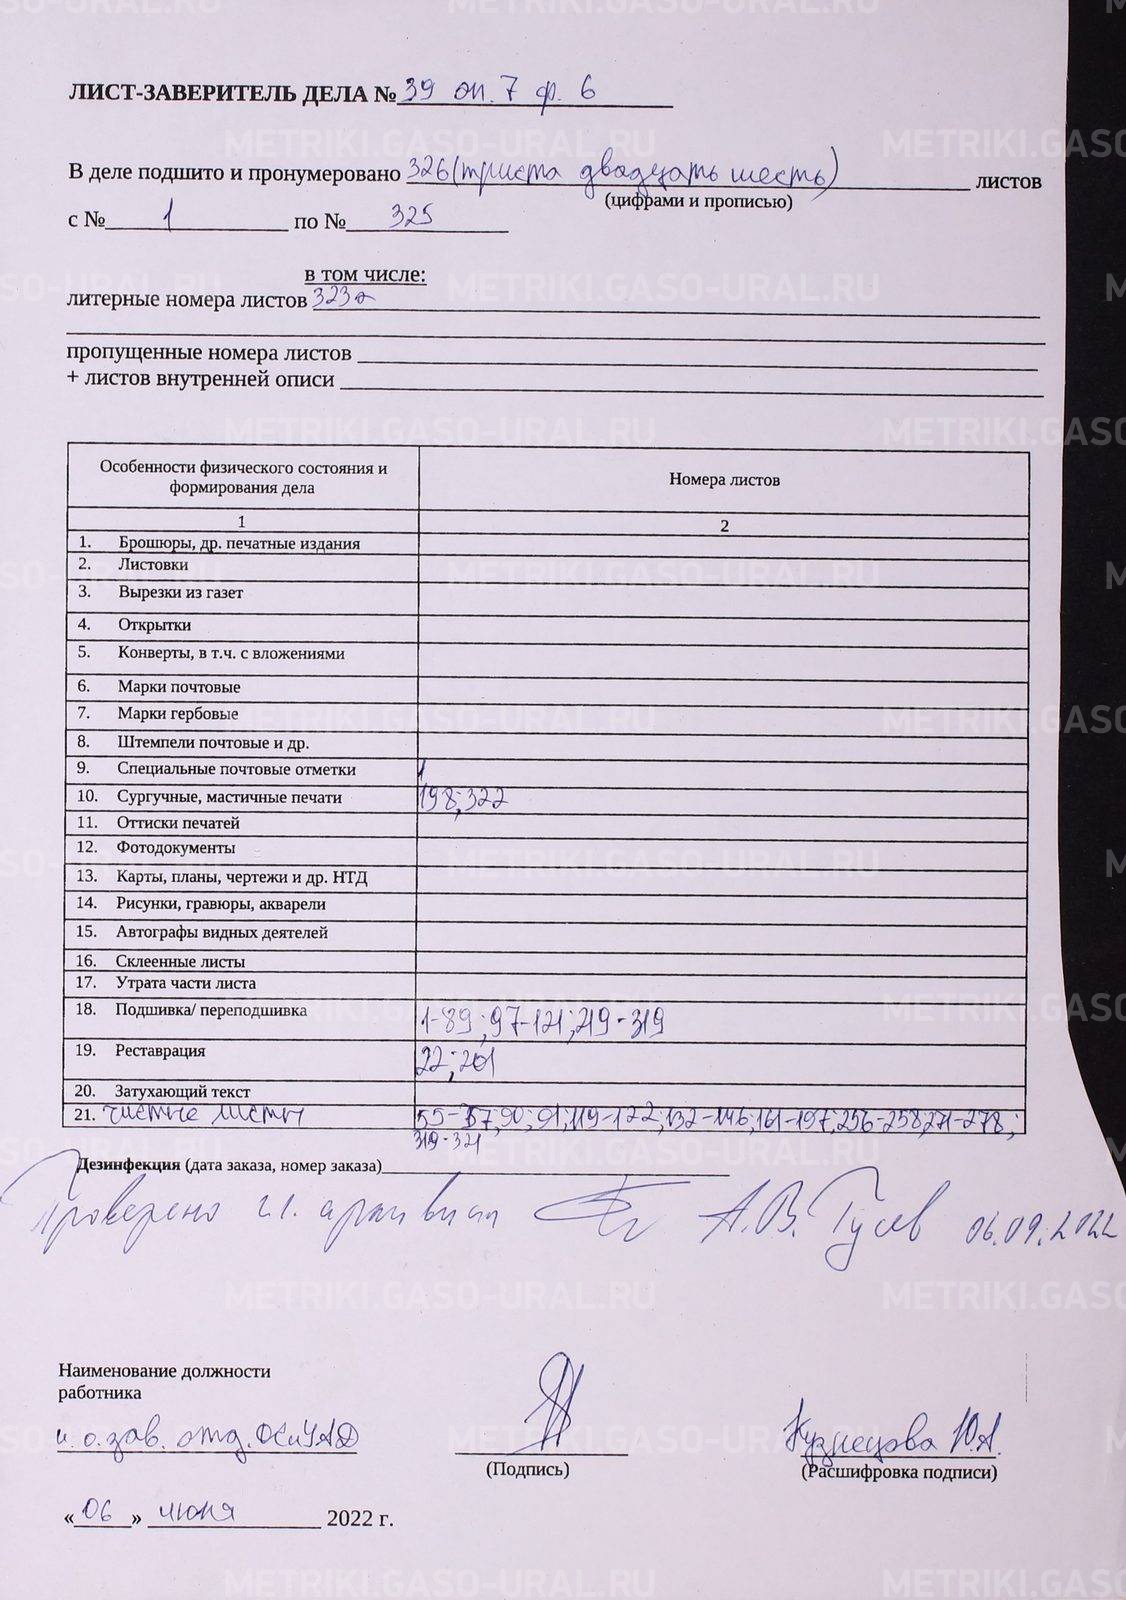 ЛИСТ-ЗАВЕРИТЕЛЬ ДЕЛА № 39 оп. 7 ф. 6
В деле подшито и пронумеровано 326 (триста двадцать шесть) листов
(цифрами и прописью)
с № 1 по № 325
в том числе:
литерные номера листов 323а
пропущенные номера листов
+ листов внутренней описи
Особенности физического состояния и формирования дела Номера листов
1 2
1. Брошюры, др. печатные издания
2. Листовки
3. Вырезки из газет
4. Открытки
5. Конверты, в т.ч. с вложениями
6. Марки почтовые
7. Марки гербовые
8. Штемпели почтовые и др.
9. Специальные почтовые отметки 1
10. Сургучные, мастичные печати 198; 322
11. Оттиски печатей
12. Фотодокументы
13. Карты, планы, чертежи и др. НТД
14. Рисунки, гравюры, акварели
15. Автографы видных деятелей
16. Склеенные листы
17. Утрата части листа
18. Подшивка/ переподшивка 1-89; 97-121; 219-319
19. Реставрация 22; 201
20. Затухающий текст
21. чистые листы 55-57; 90; 91; 119-122; 132-146; 161-197; 256-258; 271-278;
319-321
Дезинфекция (дата заказа, номер заказа)
Проверено гл. архивист А.В. Гусев 06.09.2022
Наименование должности
работника
и.о. зав. отд. ОСиУАД Кузнецова Ю.А.
(Подпись) (Расшифровка подписи)
«06» июня 2022 г.
METRIKI.GASO-URAL.RU